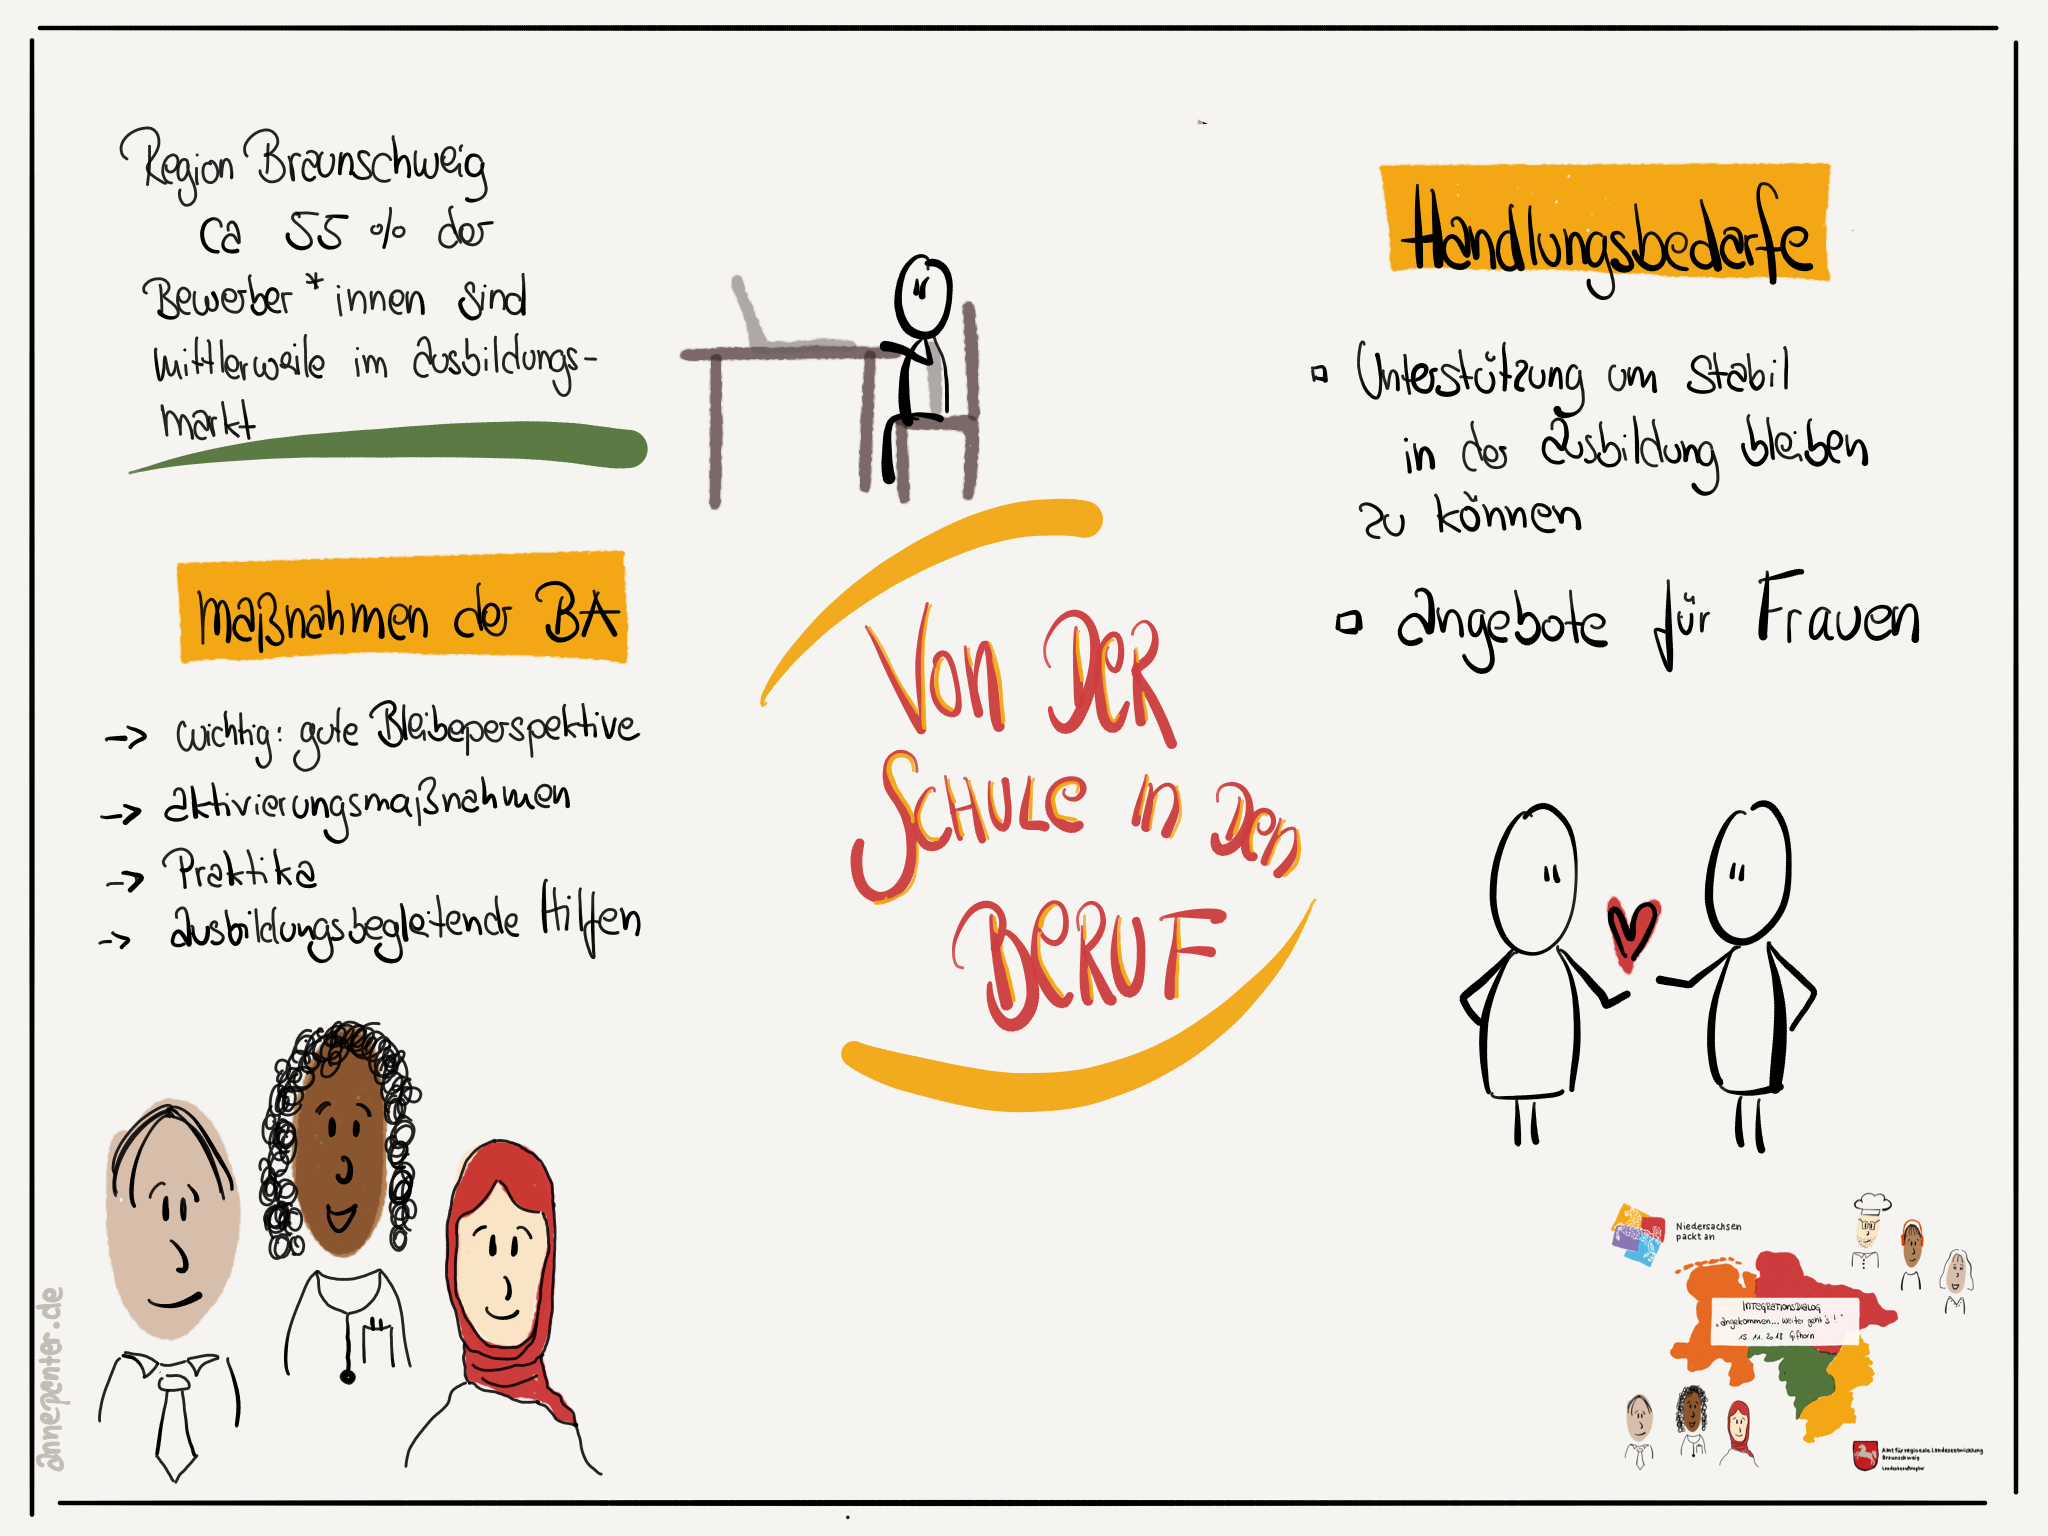 Region Braunschweig
ca 55 % der
Bewerber*innen sind
mittlerweile im Ausbildungs-
markt
Maßnahmen der BA
-> wichtig: gute Bleibeperspektive
-> Aktivierungsmaßnahmen
-> Praktika
-> Ausbildungsbegleitende Hilfen
Von der
Schule in den
Beruf
Handlungsbedarfe
Unterstützung um stabil
in der Ausbildung bleiben
zu können
Angebote für Frauen
Niedersachsen
packt an
Integrationsdialog
„Angekommen... weiter geht's!"
15.11.2018 Gifhorn
Amt für regionale Landesentwicklung
Braunschweig
Landesbeauftragter
annepenter.de